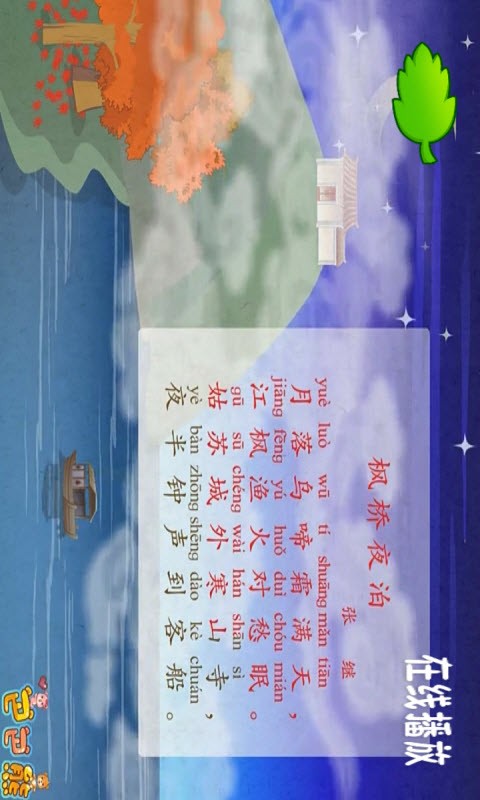 枫桥夜泊
张 继
yuè luò wū tí shuāng mǎn tiān
月落乌啼霜满天，
jiāng fēng yú huǒ duì chóu mián
江枫渔火对愁眠。
gū sū chéng wài hán shān sì
姑苏城外寒山寺，
yè bàn zhōng shēng dào kè chuán
夜半钟声到客船。
在线播放
巴巴熊